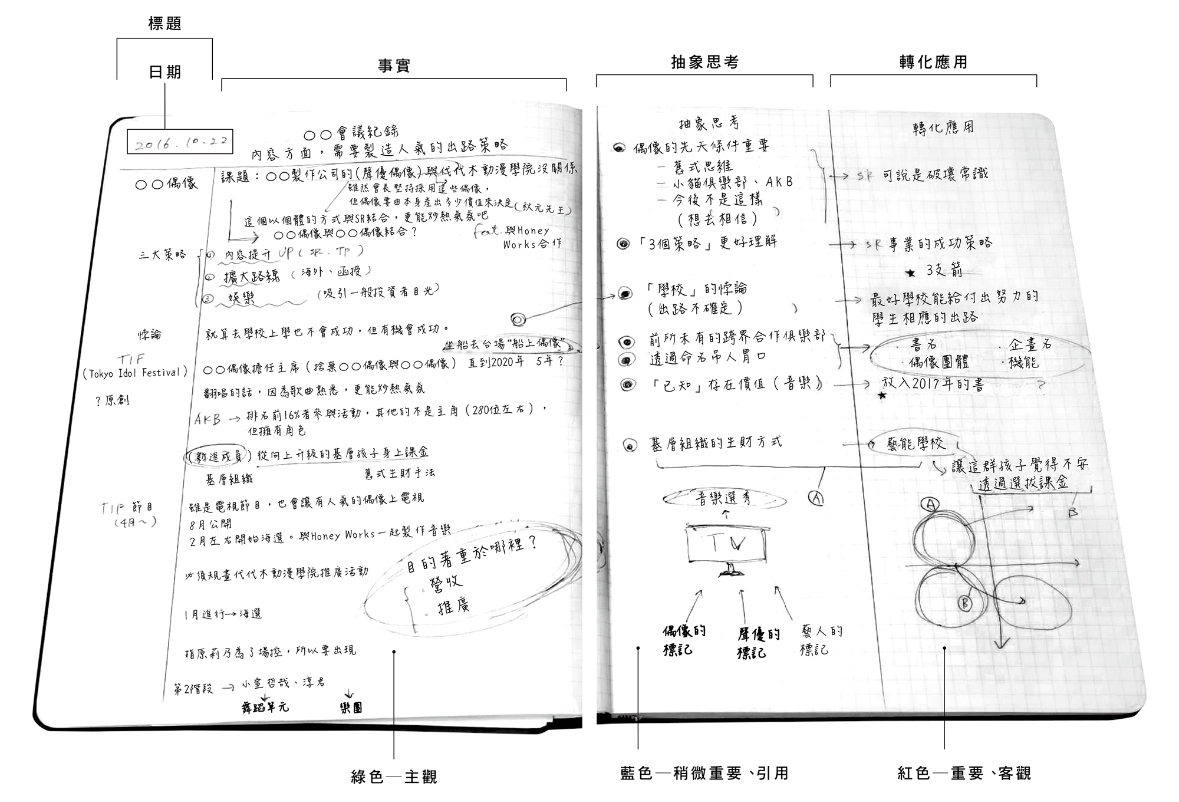 標題
日期
事實
抽象思考
轉化應用
2016.10.22
○○會議紀錄
內容方面，需要製造人氣的出路策略
○○偶像
課題：○○製作公司的(聲優偶像)與代代木動漫學院沒關係
雖然會長堅持採用這些偶像，
但偶像要由本身產出多少價值來決定(秋元先生)
這個以個體的方式與SR結合，更能炒熱氣氛吧
○○偶像與○○偶像結合？
feat. 與Honey
Works合作
三大策略
① 內容提升 UP (IR、TP)
② 擴大路線 (海外、函授)
③ 娛樂 (吸引一般投資者目光)
悖論
就算去學校上學也不會成功，但有機會成功。
坐船去台場"船上偶像"
TIF
(Tokyo Idol Festival)
○○偶像擔任主席(捨棄○○偶像與○○偶像) 直到2020年 5年？
？原創
翻唱的話，因為歌曲熟悉，更能炒熱氣氛
AKB → 排名前16%者參與活動，其他的不是主角(280位左右)，
但擁有角色
從向上升級的基層孩子身上課金
基層組織 舊式生財手法
TIP 節目
(4月～)
雖是電視節目，也會讓有人氣的偶像上電視
8月公開
2月左右開始海選。與Honey Works一起製作音樂
目的著重於哪裡？
．營收
．推廣
必須規畫代代木動漫學院推廣活動
1月進行→海選
指原莉乃為了場控，所以要出現
第2階段 → 小室哲哉、淳君
舞蹈單元 樂團
綠色—主觀
抽象思考
偶像的先天條件重要
－舊式思維
－小貓俱樂部、AKB
－今後不是這樣
(想去相信)
「3個策略」更好理解
「學校」的悖論
(出路不確定)
前所未有的跨界合作俱樂部
透過命名吊人胃口
「已知」存在價值(音樂)
基層組織的生財方式
Ⓐ
音樂選秀
TV
偶像的
標記
聲優的
標記
藝人的
標記
藍色—稍微重要、引用
轉化應用
→ SR 可說是破壞常識
→ SR 事業的成功策略
★ 3支箭
→ 最好學校能給付出努力的
學生相應的出路
．書名 ．企畫名
．偶像團體 ．機能
→ 放入2017年的書 ？
★
→ 藝能學校
讓這群孩子覺得不安
透過選拔課金
B
Ⓐ
Ⓑ
紅色—重要、客觀